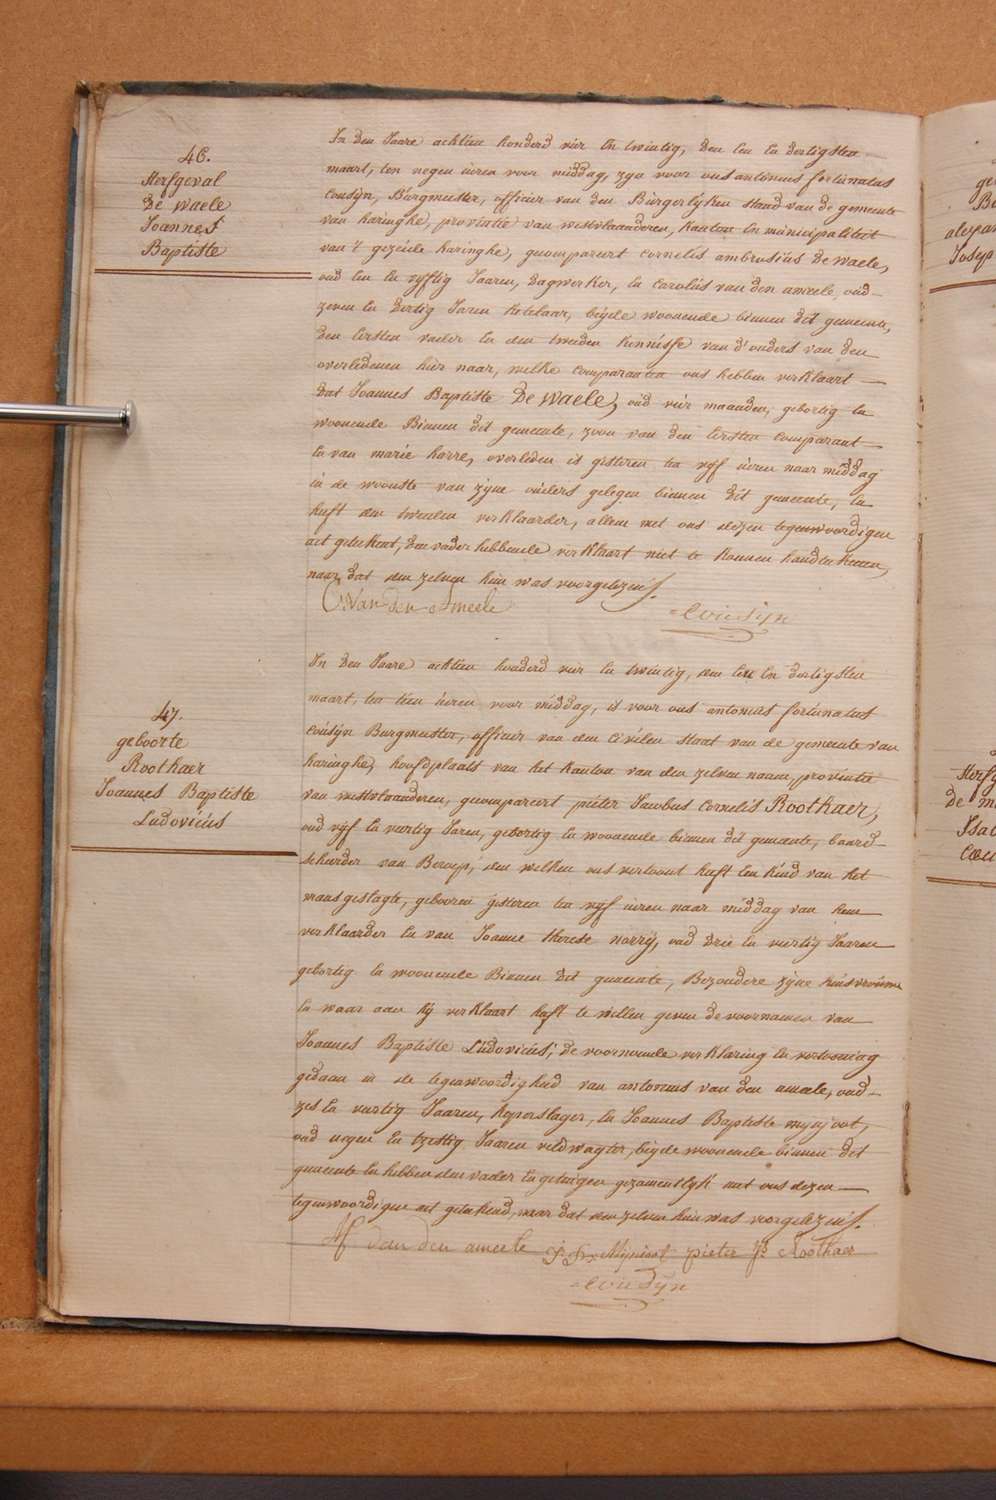 46.
Sterfgeval
De Waele
Joannes
Baptiste
In den Jaare achtien honderd vier en twintig, den een en dertigsten
maart, ten negen uiren voor middag, zyn voor ons antonius fortunatus
Cousÿn, Burgmeester, officier van den Burgerlyken staad van de gemeente
van haringhe, provintie van westvlaanderen, kanton en municipaliteit
van 't gezeide haringhe, gecompareert cornelis ambrosius De Waele,
oud een en vyftig Jaaren, dagwerker, en carolus van den ameele, oud
zeven en dertig Jaren ketelaar, beÿde woonende binnen dit gemeente,
den eersten vader en den tweeden kennisse van d'ouders van den
overledenen hier naar, welke comparanten ons hebben verklaart
dat Joannes Baptiste De Waele, oud vier maanden, gebortig en
woonende Binnen dit gemeente, zoon van den Eersten comparant
en van marie harre, overleden is gisteren ten vyf uiren naar middag
in de wooste van zÿne ouders gelegen binnen dit gemeente, en
heeft den tweeden verklaarder, alleen met ons dezen tegenwoordigen
act geteekent, den vader hebbende verklaart niet te konnen handteekenen,
naar dat den zelven hun was voorgelezen.
C Van den Ameele
Cousÿn
47.
geboorte
Roothaer
Joannes Baptiste
Ludovicus
In den Jaare achtien honderd vier en twintig, den een en dertigsten
maart, ten tien uiren voor middag, is voor ons antonius fortunatus
cousÿn Burgmeester, officier van den civielen staat van de gemeente van
haringhe, hoofdplaats van het kanton van den zelven naam, provintie
van westvlaanderen, gecompareert pieter Jacobus Cornelis Roothaer,
oud vyf en veertig Jaren, gebortig en woonende binnen dit gemeente, baard-
scheerder van Beroep, den welken ons vertoont heeft een kind van het
mans geslagte, gebooren gisteren ten vyf uiren naar middag van hem
verklaarder en van Joanne therese norrÿ, oud drie en veertig Jaaren
gebortig en woonende Binnen dit gemeente, Bezondere zÿne huisvrouwe
en waar aan hÿ verklaart heeft te willen geven de voornamen van
Joannes Baptiste Ludovicus; de voornoemde verklaring en vertooning
gedaan in de tegenwoordigheid van antonius van den ameele, oud
zes en veertig Jaaren, koperslager, en Joannes Baptiste mynjoot,
oud negen en tzestig Jaaren veldwagter, beyde woonende binnen dit
gemeente en hebben den vader en getuigen gezamentlyk met ons dezen
tegenwoordigen act geteekend, naar dat den zelven hun was voorgelezen.
AF van den ameele pieter Jb Roothaer
Cousÿn